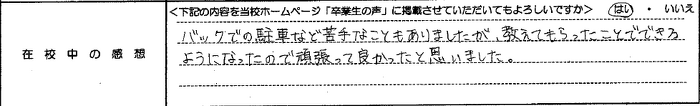 <下記の内容を当校ホームページ「卒業生の声」に掲載させていただいてもよろしいですか> はい ・ いいえ
在校中の感想
バックでの駐車など苦手なこともありましたが、教えてもらったことでできる
ようになったので頑張って良かったと思いました。